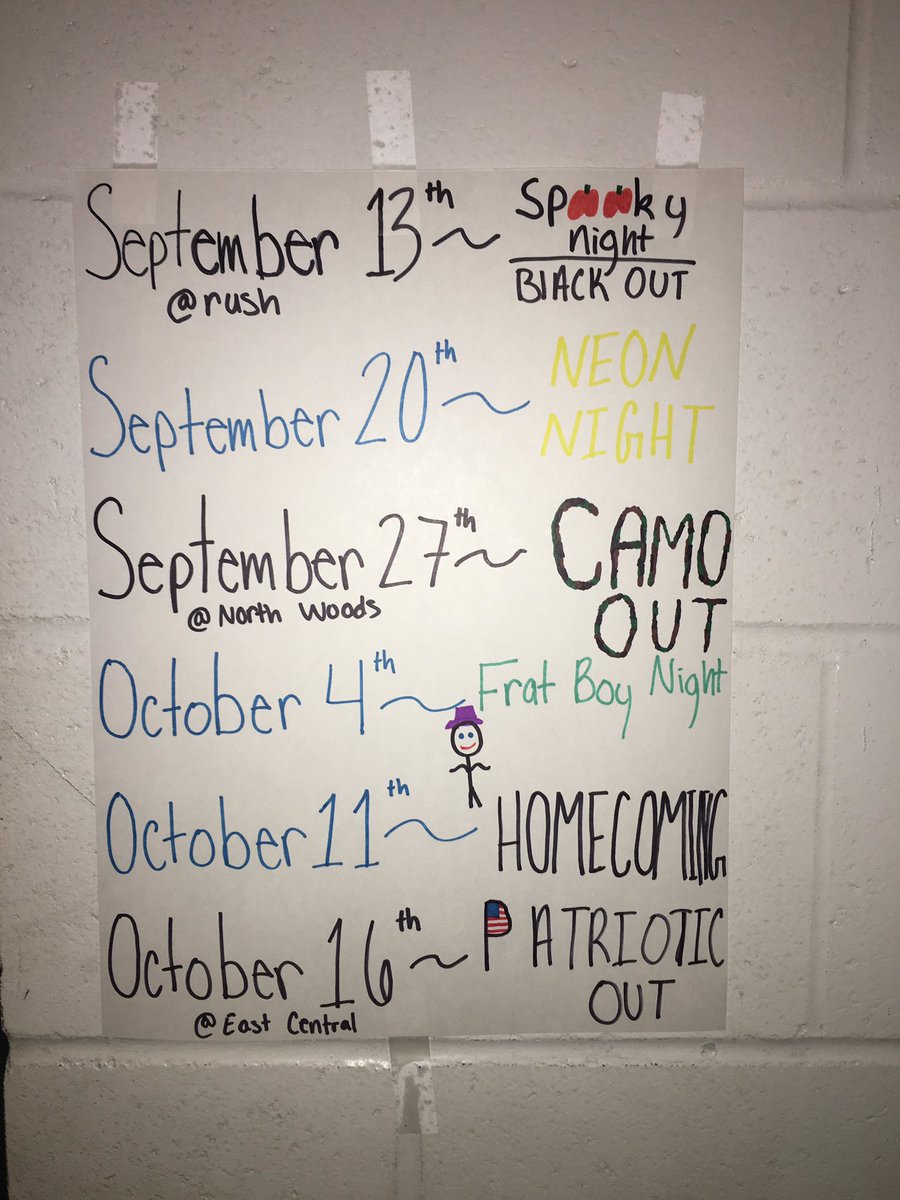 September 13th ~ Spooky
night
@rush BlACK OUT
September 20th ~ NEON
NIGHT
September 27th ~ CAMO
@North Woods OUT
October 4th ~ Frat Boy Night
October 11th ~ HOMECOMING
October 16th ~ PATRIOTIC
@East Central OUT